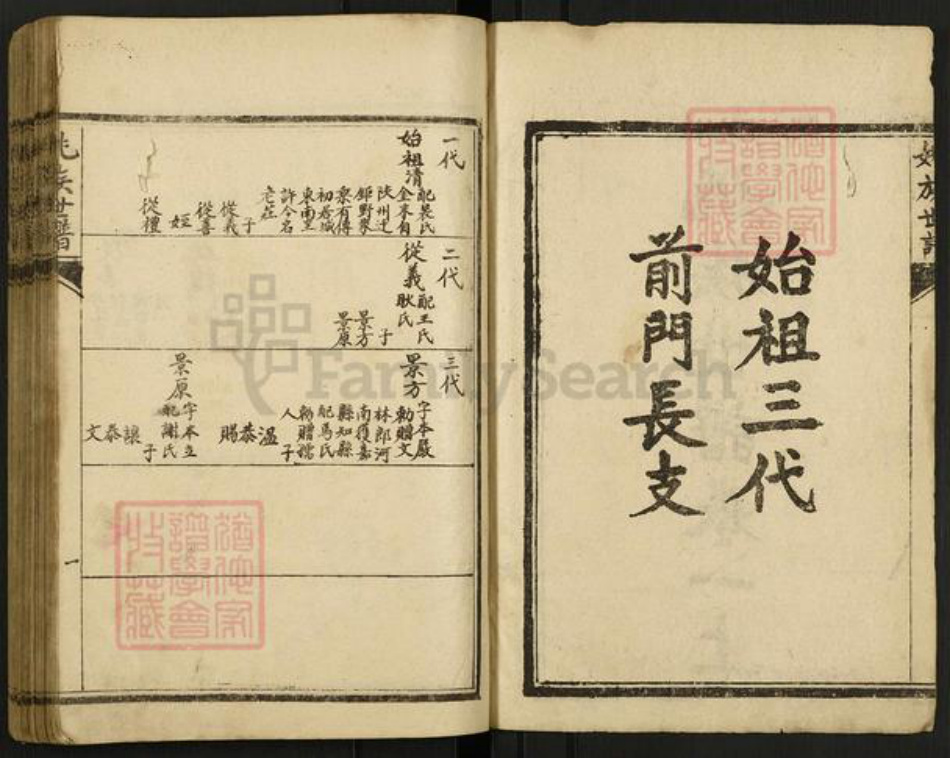 始祖三代
前門長支
族世
一代
始祖清
配裴氏
金末自
陝州遷
鉅野眾
眾有傳
初居城
東南里
許今名
老莊
子
從義
從善
姪
從禮
二代
從義
配王氏
耿氏
子
景方
景原
三代
景方
字本嚴
勅贈文
林郎河
南獲嘉
縣知縣
配馬氏
勅贈孺
人
子
溫
恭
賜
景原
字本立
配謝氏
子
讓
泰
文
族世譜
一
猶他家
譜學會
收藏
猶他家
譜學會
收藏
FamilySearch